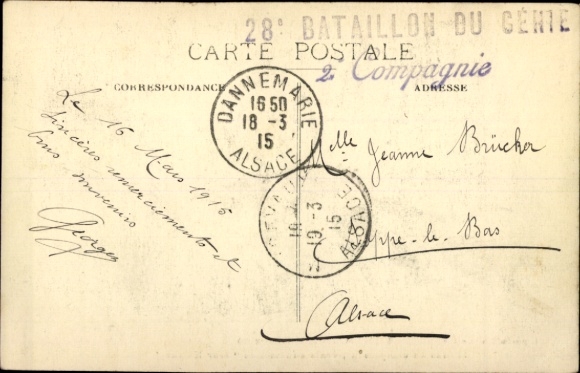 28e BATAILLON DU GÉNIE
CARTE POSTALE
2e Compagnie
CORRESPONDANCE
ADRESSE
DANNEMARIE
16 50
18 - 3
15
ALSACE
Le 16 Mars 1915
Sincères remerciements et
bons souvenirs
Georges
Mlle Jeanne Brücher
19 - 3
15
ALSACE
le Bas
Alsace